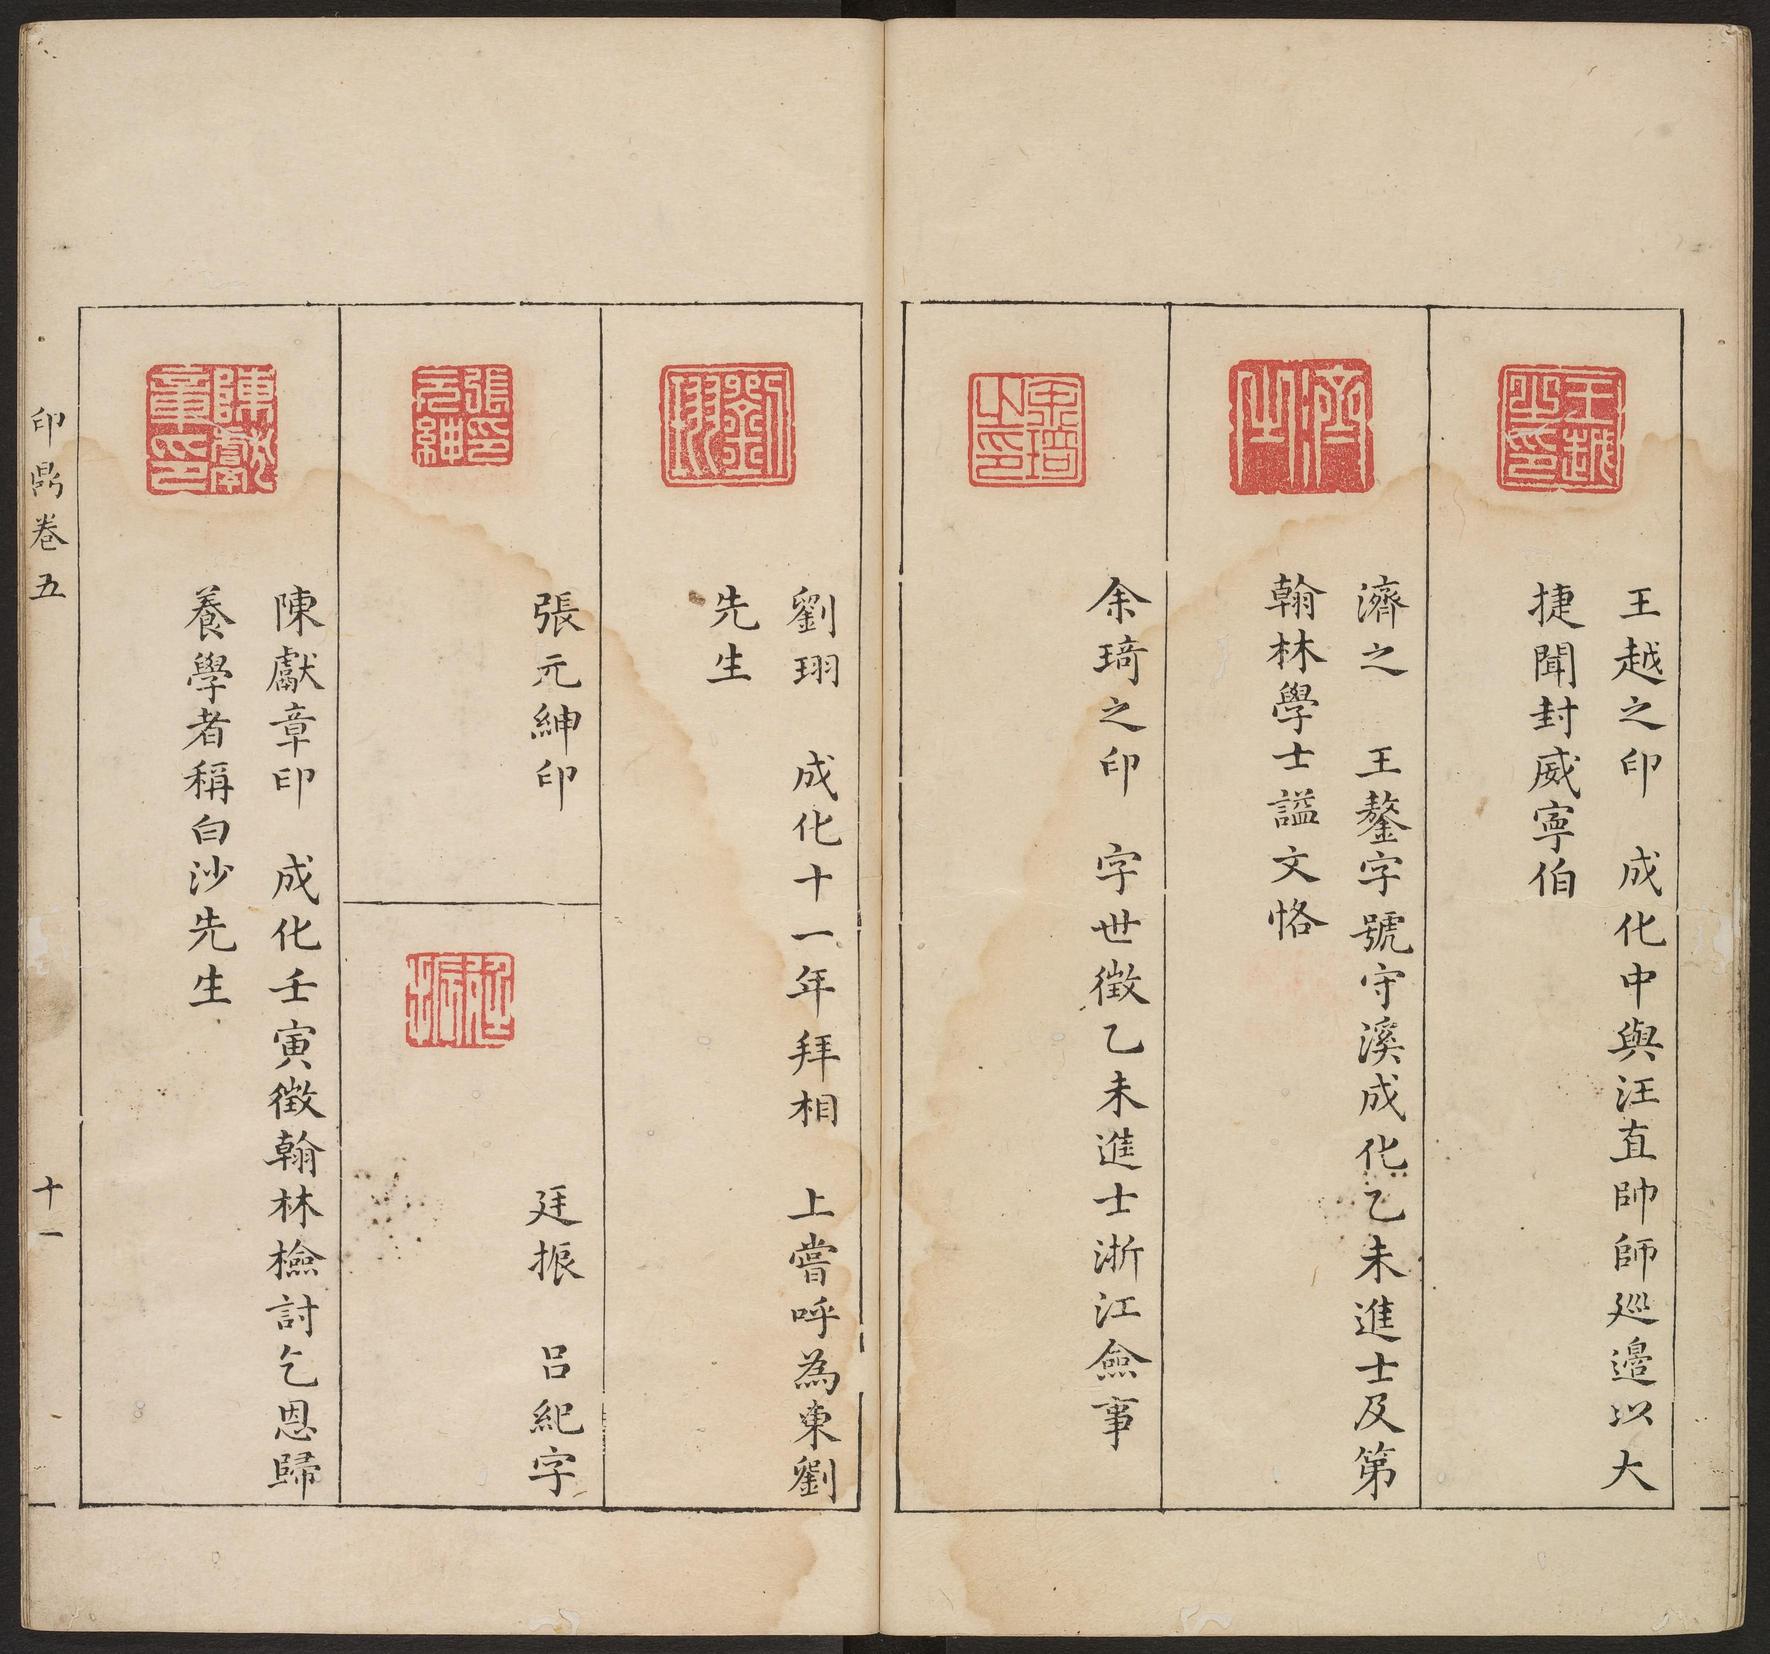 王越之印
王越之印　成化中與汪直帥師廵邉以大
捷聞封威寧伯
濟之
濟之　王鏊字號守溪成化乙未進士及第
翰林學士謚文恪
余琦之印
余琦之印　字世徵乙未進士浙江僉事
劉珝
劉珝　成化十一年拜相　上嘗呼為東劉
先生
張元紳印
張元紳印
廷振
廷振　呂紀字
陳獻章印
陳獻章印　成化壬寅徵翰林檢討乞恩歸
養學者稱白沙先生
印鼎卷五
十一